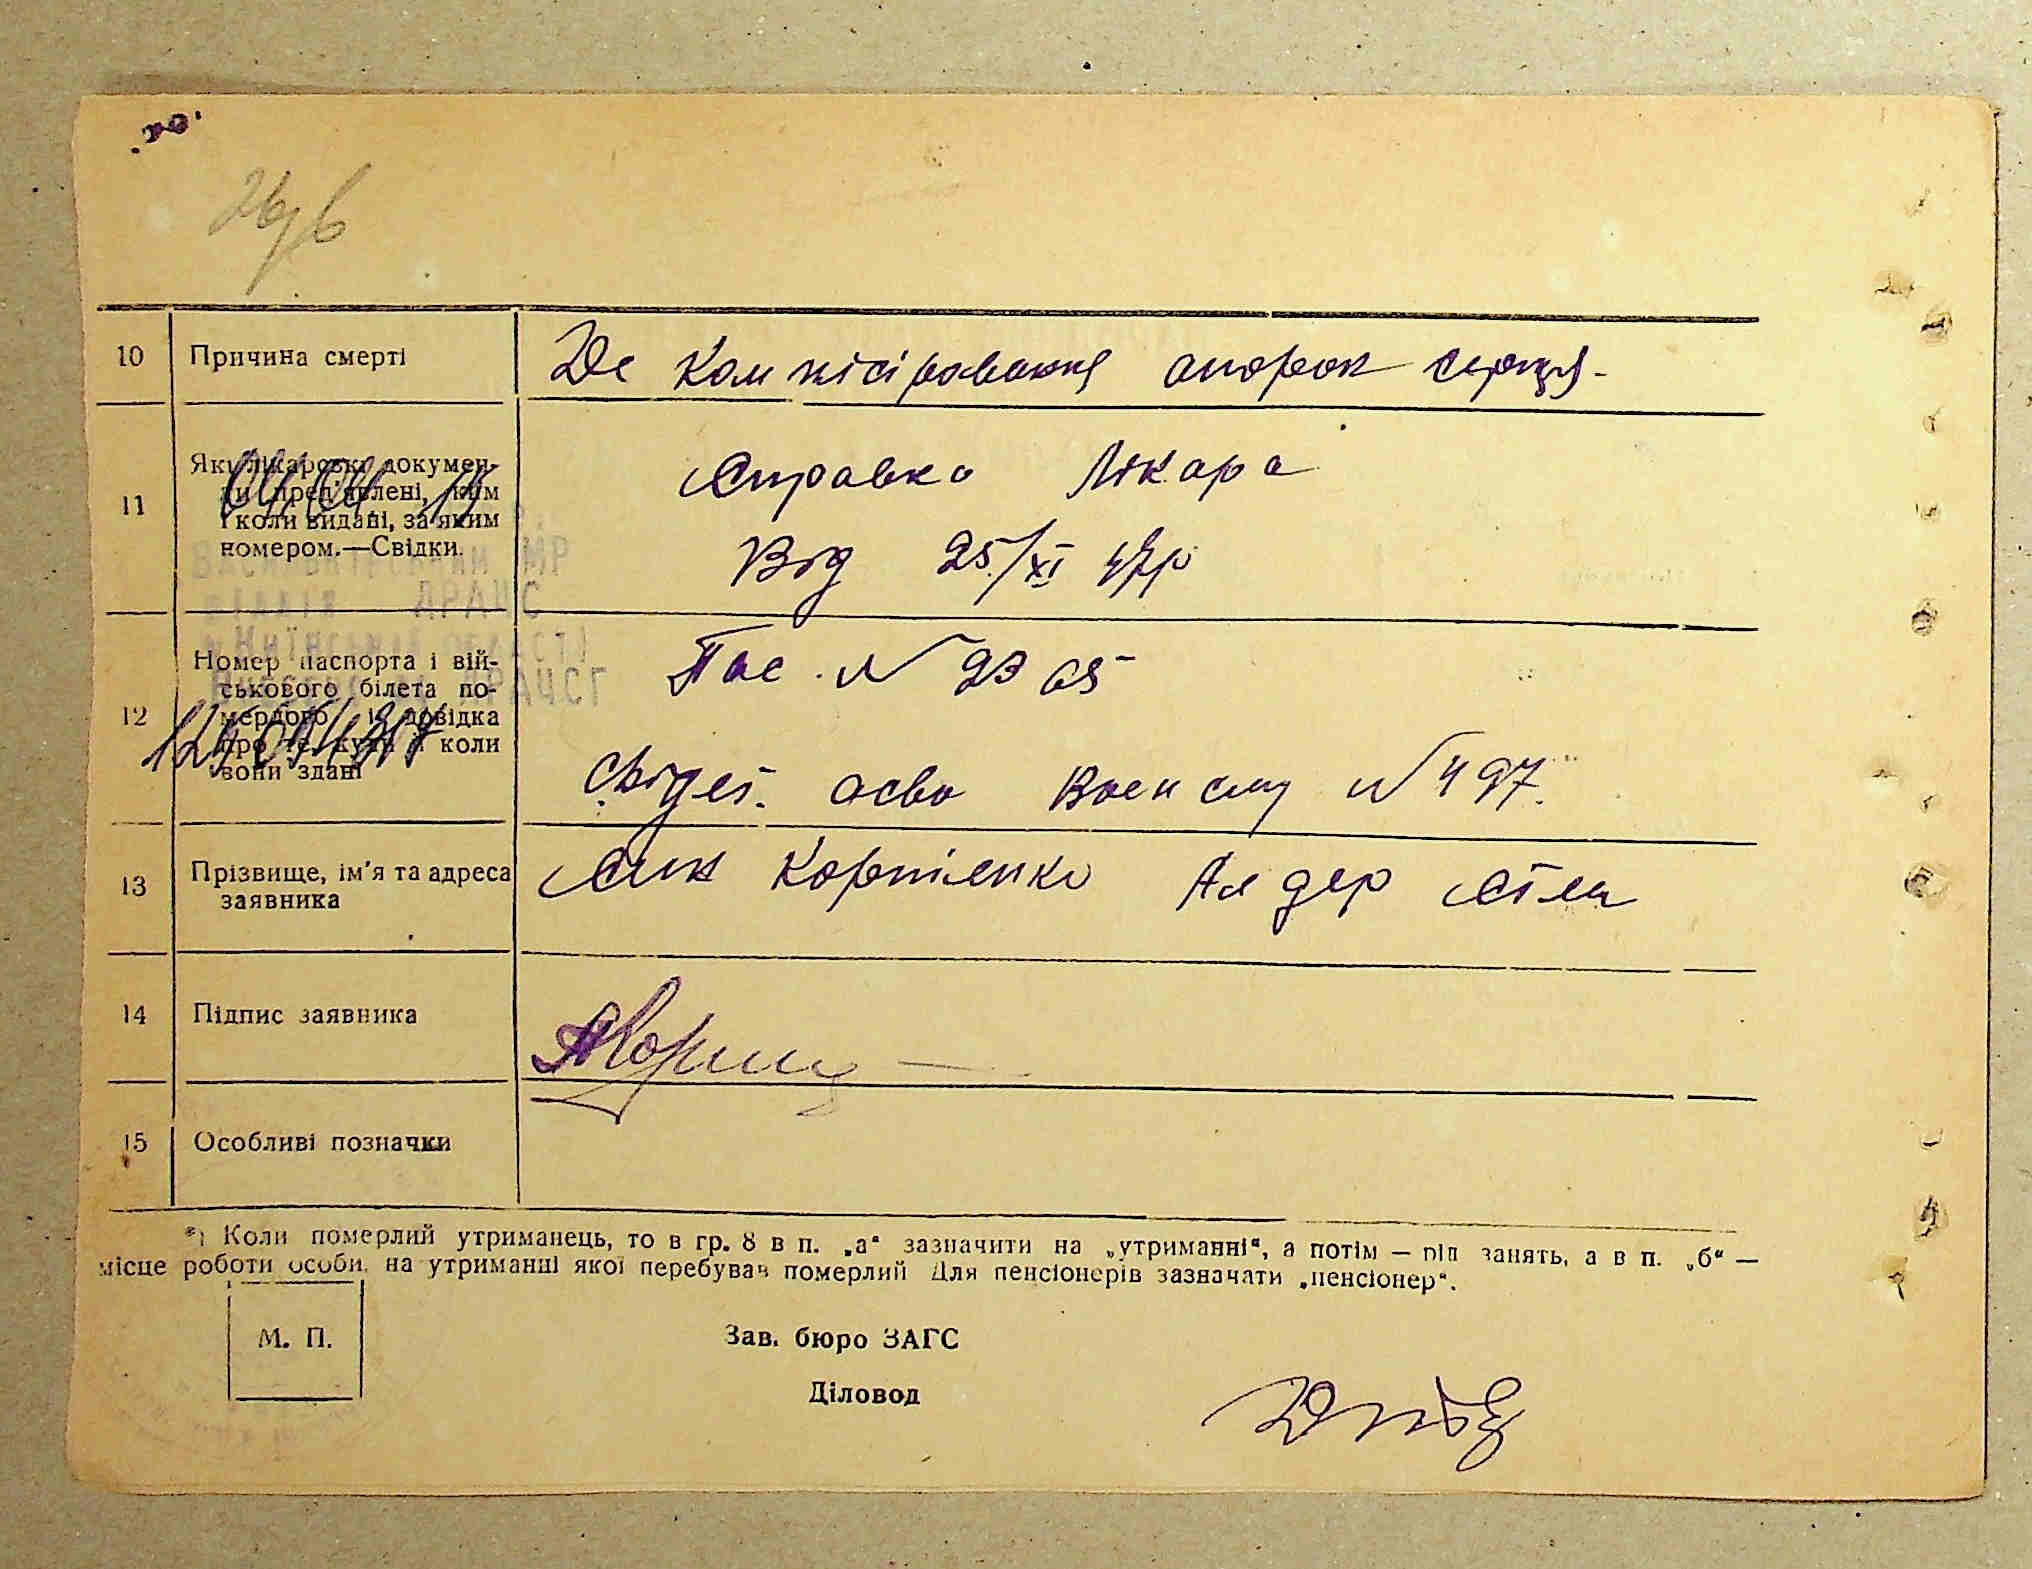 10 Причина смерті
Де компісіровання опорок серця.
11 Які лікарські докумен-
ти пред'явлені, ким
і коли видані, за яким
номером.—Свідки.
Справка Лікара
Від 25/XI 47р
МР
ДРАЦС
12 Номер паспорта і вій-
ськового білета по-
мерлого і довідка
про те, куди і коли
вони здані
Пас. № 2365
Свідец. асво Воен сму № 497.
13 Прізвище, ім'я та адреса
заявника
Син Корпіенко
14 Підпис заявника
15 Особливі позначки
*) Коли померлий утриманець, то в гр. 8 в п. „а“ зазначити на „утриманні“, а потім — рід занять, а в п. „б“ —
місце роботи особи, на утриманні якої перебував померлий Для пенсіонерів зазначати „пенсіонер“.
М. П.
Зав. бюро ЗАГС
Діловод